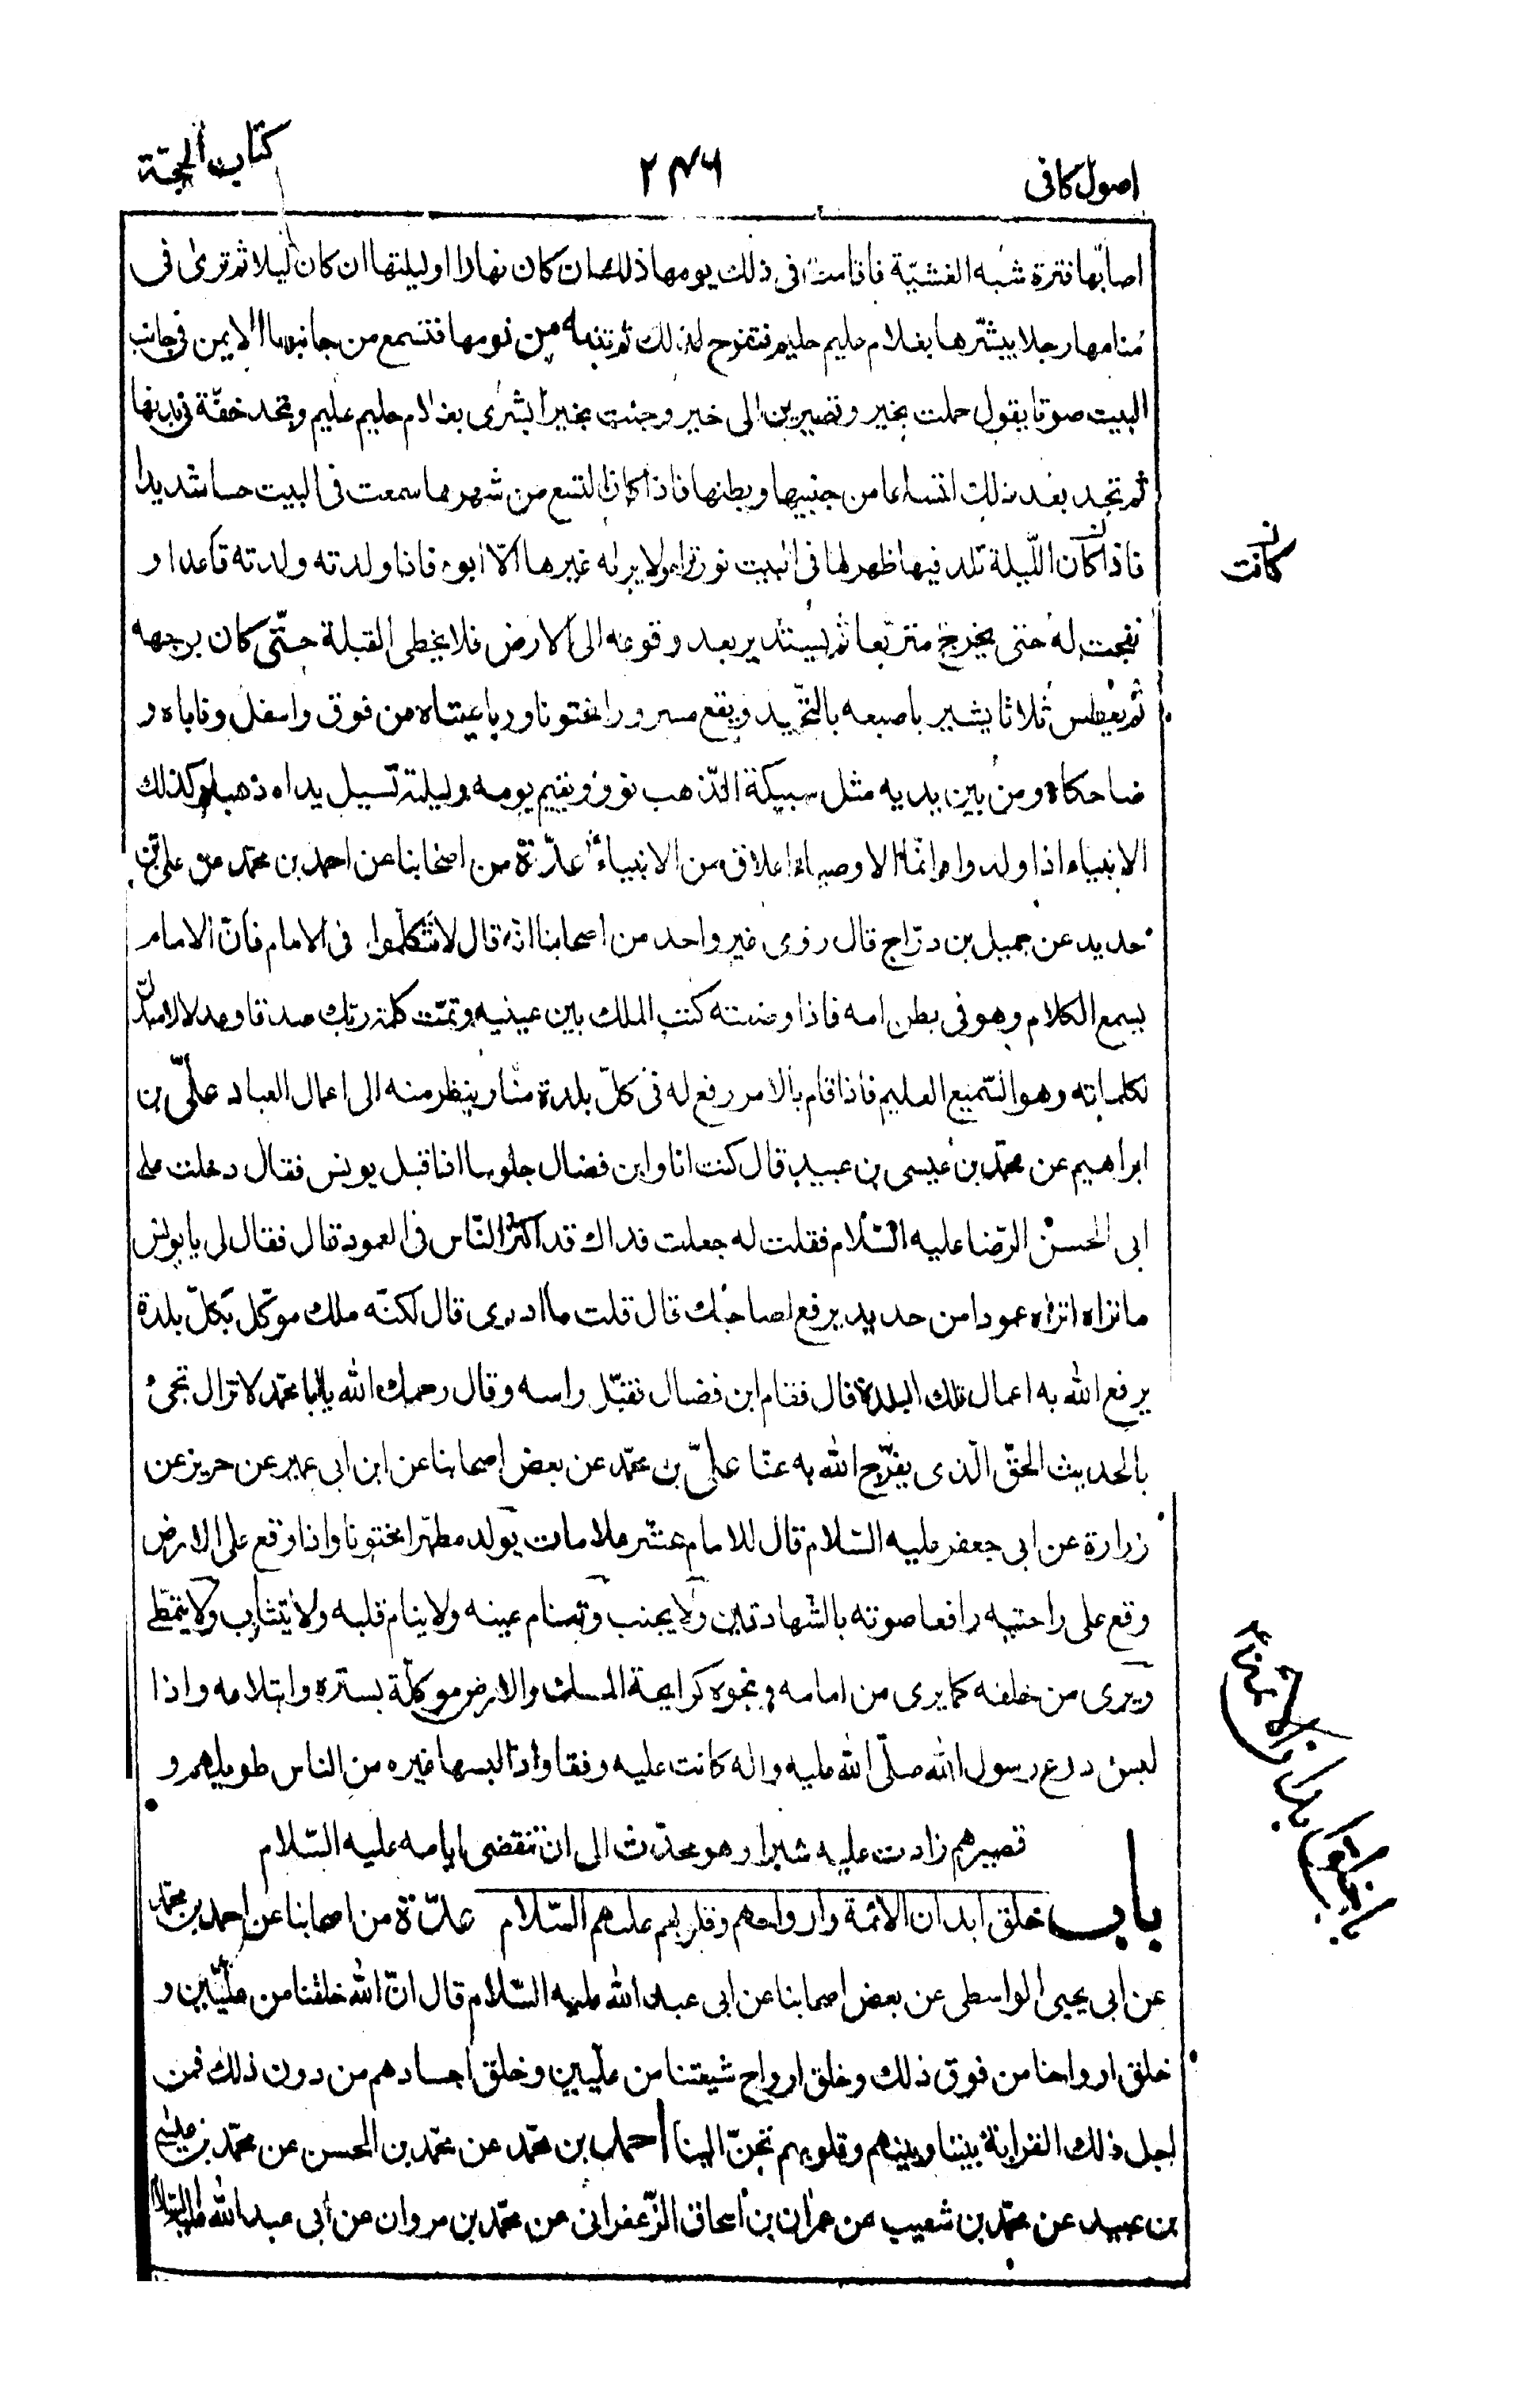 كتاب الحجة
٢٤٦
اصول كافى
اصابها فترة شبه الغشية فاقامت فى ذلك يومها ذلك ان كان نهارا او ليلتها ان كان ليلا ثم ترى فى
منامها رجلا يبشّرها بغلام عليم حليم فتفرح لذلك ثم تنتبه من نومها فتسمع من جانبها الايمن فى جانب
البيت صوتا يقول حملت بخير وتصيرين الى خير وجئت بخير ابشرى بغلام حليم عليم وتجد خفّة فى بدنها
ثم تجد بعد ذلك اتساعا من جنبيها وبطنها فاذا كان لتسع من شهرها سمعت فى البيت حسا شديدا
فاذا كان اللّيلة تلد فيها ظهر لها فى البيت نور تراه لا يراه غيرها الّا ابوه فاذا ولدته ولدته قاعدا و
كانت
تفجت له حتى يخرج متربعا ثم يستدير بعد وقوعه الى الارض فلا يخطى القبلة حتّى كان بوجهه
ثم يعطس ثلاثا يشير باصبعه بالتحميد ويقع مسرورا مختونا ورباعيتاه من فوق واسفل وناباه و
ضاحكاه ومن بين يديه مثل سبيكة الذّهب نور ويقيم يومه وليلته تسيل يداه ذهبا وكذلك
الانبياء اذا ولدوا وانّما الاوصياء اعلاق من الانبياء عدّة من اصحابنا عن احمد بن محمّد عن على بن
حديد عن جميل بن درّاج قال روى غير واحد من اصحابنا انه قال لا تتكلّموا فى الامام فانّ الامام
يسمع الكلام وهو فى بطن امه فاذا وضعته كتب الملك بين عينيه وتمّت كلمة ربّك صدقا وعدلا لا مبدّل
لكلماته وهو السّميع العليم فاذا قام بالامر رفع له فى كلّ بلدة منار ينظر منه الى اعمال العباد علىّ بن
ابراهيم عن محمّد بن عيسى بن عبيد قال كنت انا وابن فضال جلوسا اذ اقبل يونس فقال دخلت على
ابى الحسن الرّضا عليه السّلام فقلت له جعلت فداك قد اكثر النّاس فى العمود قال فقال لى يا يونس
ما تراه اتراه عمودا من حديد يرفع لصاحبك قال قلت ما ادرى قال لكنّه ملك موكّل بكلّ بلدة
يرفع الله به اعمال تلك البلدة قال فقام ابن فضال فقبّل راسه وقال رحمك الله يا ابا محمّد لا تزال تجئ
بالحديث الحقّ الّذى يفرّج الله به عنّا علىّ بن محمّد عن بعض اصحابنا عن ابن ابى عمير عن حريز عن
زرارة عن ابى جعفر عليه السّلام قال للامام عشر علامات يولد مطهّرا مختونا واذا وقع على الارض
وقع على راحتيه رافعا صوته بالشّهادتين ولا يجنب وتنام عينه ولا ينام قلبه ولا يتثاءب ولا يتمطّى
ويرى من خلفه كما يرى من امامه ونجوه كرايحة المسك والارض موكّلة بستره وابتلاعه واذا
لبس درع رسول الله صلّى الله عليه واله كانت عليه وفقا واذا لبسها غيره من الناس طويلهم و
قصيرهم زادت عليه شبرا وهو محدّث الى ان تنقضى ايامه عليه السّلام
باب خلق ابدان الائمة وارواحهم وقلوبهم عليهم السّلام عدّة من اصحابنا عن احمد بن محمّد
عن ابى يحيى الواسطى عن بعض اصحابنا عن ابى عبد الله عليه السّلام قال انّ الله خلقنا من علّيّين و
خلق ارواحنا من فوق ذلك وخلق ارواح شيعتنا من علّيين وخلق اجسادهم من دون ذلك فمن
اجل ذلك القرابة بيننا وبينهم وقلوبهم تحنّ الينا احمد بن محمّد عن محمّد بن الحسن عن محمّد بن عيسى
بن عبيد عن محمّد بن شعيب عن عمران بن اسحاق الزّعفرانى عن محمّد بن مروان عن أبى عبد الله عليه السّلام